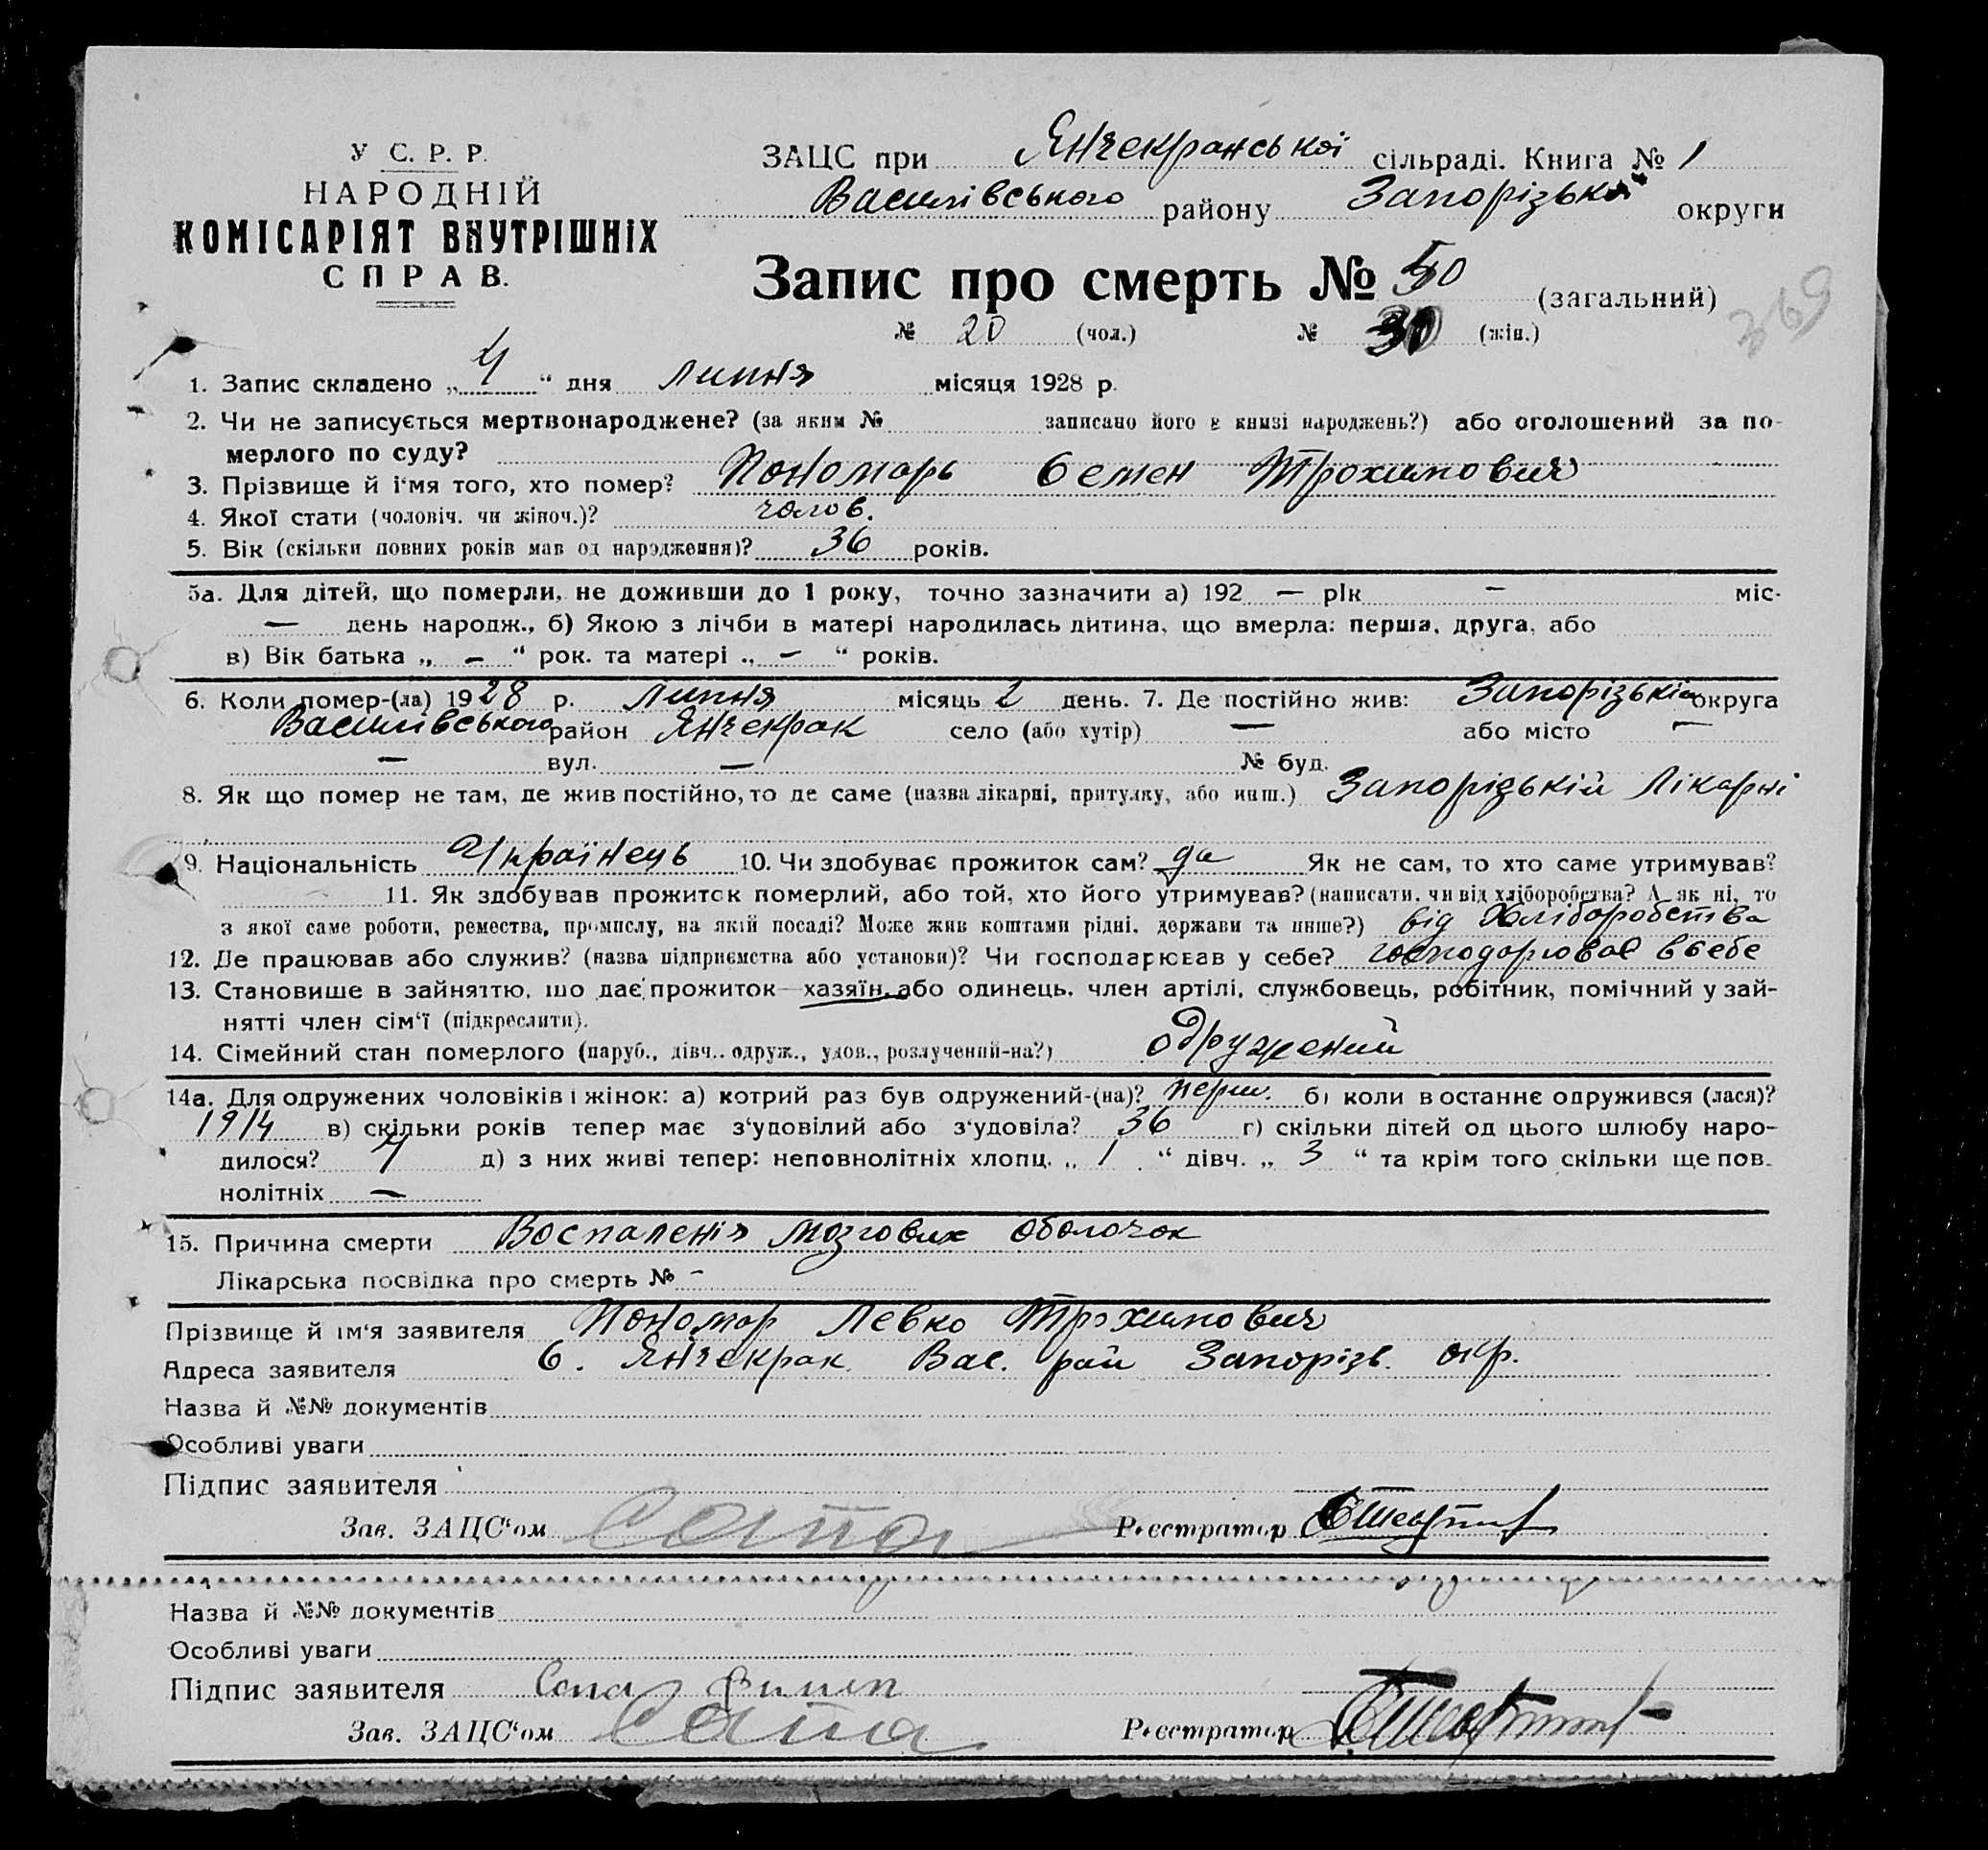 У С. Р. Р.
НАРОДНІЙ
КОМІСАРІЯТ ВНУТРІШНІХ
СПРАВ.
ЗАЦС при Янчекранської сільраді. Книга № 1
Василівського району Запорізької округи
Запис про смерть № 50 (загальний)
№ 20 (чол.) № 30 (жін.)
369
1. Запис складено „ 4 “ дня липня місяця 1928 р.
2. Чи не записується мертвонароджене? (за яким № записано його в книзі народжень?) або оголошений за по-
мерлого по суду?
3. Прізвище й і'мя того, хто помер? Пономарь Семен Трохимович
4. Якої стати (чоловіч. чи жіноч.)? чолов.
5. Вік (скільки повних років мав од народження)? 36 років.
5а. Для дітей, що померли, не доживши до 1 року, точно зазначити а) 192 — рік — міс-
— день народж., б) Якою з лічби в матері народилась дитина, що вмерла: перша, друга, або
в) Вік батька „ – “ рок. та матері „ – “ років.
6. Коли помер-(ла) 1928 р. липня місяць 2 день. 7. Де постійно жив: Запорізькій округа
Василівського район Янчекрак село (або хутір) — або місто —
— вул. — № буд.
8. Як що помер не там, де жив постійно, то де саме (назва лікарні, притулку, або инш.) Запорізькій Лікарні
9. Національність Українець 10. Чи здобуває прожиток сам? да Як не сам, то хто саме утримував?
11. Як здобував прожиток померлий, або той, хто його утримував? (написати, чи від хліборобства? А як ні, то
з якої саме роботи, ремества, промислу, на якій посаді? Може жив коштами рідні, держави та инше?) від Хліборобства
12. Де працював або служив? (назва підприємства або установи)? Чи господарював у себе? господарював в себе
13. Становише в зайняттю, що дає прожиток—хазяїн, або одинець, член артілі, службовець, робітник, помічний у зай-
нятті член сім'ї (підкреслити).
14. Сімейний стан померлого (паруб., дівч., одруж., удов., розлучений-на?) одружений
14а. Для одружених чоловіків і жінок: а) котрий раз був одружений-(на)? перш. б) коли в останнє одружився (лася)?
1914 в) скільки років тепер має з'удовілий або з'удовіла? 36 г) скільки дітей од цього шлюбу наро-
дилося? 4 д) з них живі тепер: неповнолітніх хлопц. „ 1 “ дівч. „ 3 “ та крім того скільки ще пов-
нолітніх —
15. Причина смерти Воспаленія мозгових оболочок
Лікарська посвідка про смерть № –
Прізвище й ім'я заявителя Пономар Левко Трохимович
Адреса заявителя С. Янчекрак Вас. рай Запорізь. окр.
Назва й №№ документів
Особливі уваги
Підпис заявителя
Зав. ЗАЦС'ом Сапа Реєстратор
Назва й №№ документів
Особливі уваги
Підпис заявителя
Зав. ЗАЦС'ом Сапа Реєстратор